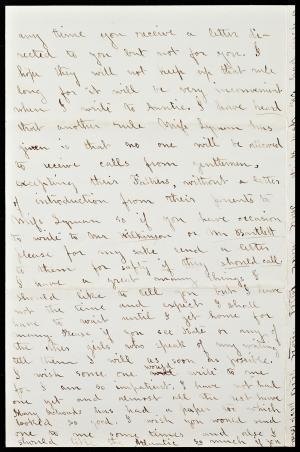 any time you receive a letter di-
rected to you but not for you. I
hope they will not keep up that rule
long for it will be very inconvenient
when I write to Auntie. I have heard
that another rule Miss Lyman has
given is that no one will be allowed
to receive calls from gentlemen,
excepting their Fathers, without a letter
of introduction from their parents to
Miss Lyman so if you have occasion
to write to Mr Wilkinson or Mr Bartlett
please for my sake send a letter
to them for safety if they should call.
I have a great many things I
should like to tell you but I have
not the time and expect I shall
have to wait until I get home for
many. Please if you see or any of
the other girls who speak of my writing
tell them I will as soon as possible.
I wish some one would write to me
for I am so impatient. I have not had
one yet and almost all the rest have
Mary has had a paper to which
looked so good. I wish you would send
one to me some times and also I
should like the Atlantic so much if you